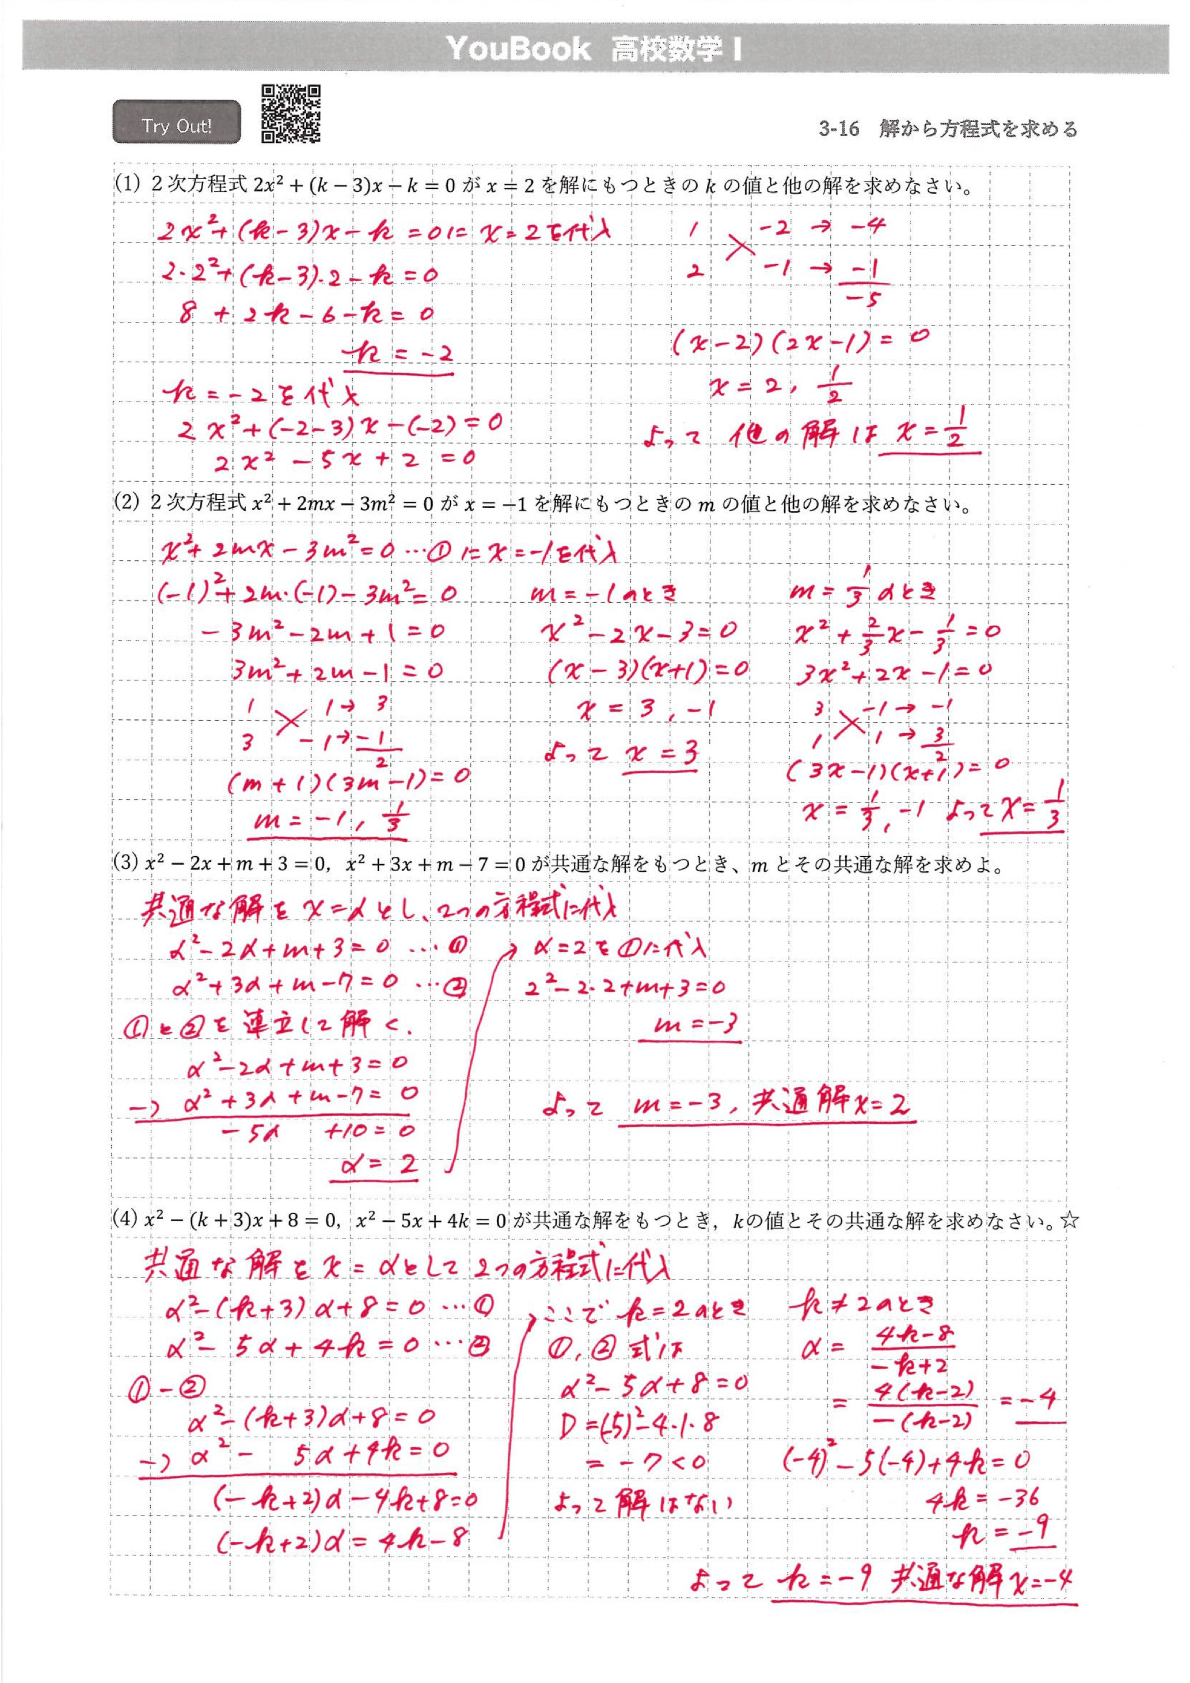 YouBook 高校数学 I
Try Out!
3-16 解から方程式を求める
(1) 2次方程式 2x² + (k − 3)x − k = 0 が x = 2 を解にもつときの k の値と他の解を求めなさい。
2x²+(k−3)x−k=0に x=2を代入
2・2²+(k−3)・2−k=0
8+2k−6−k=0
k=−2
k=−2を代入
2x²+(−2−3)x−(−2)=0
2x²−5x+2=0
1 −2 → −4
2 −1 → −1
−5
(x−2)(2x−1)=0
x=2, 1/2
よって 他の解は x=1/2
(2) 2次方程式 x² + 2mx − 3m² = 0 が x = −1 を解にもつときの m の値と他の解を求めなさい。
x²+2mx−3m²=0 …① に x=−1を代入
(−1)²+2m・(−1)−3m²=0
−3m²−2m+1=0
3m²+2m−1=0
1 1→ 3
3 −1→−1
2
(m+1)(3m−1)=0
m=−1, 1/3
m=−1のとき
x²−2x−3=0
(x−3)(x+1)=0
x=3, −1
よって x=3
m=1/3のとき
x²+2/3x−1/3=0
3x²+2x−1=0
3 −1→ −1
1 1→ 3
2
(3x−1)(x+1)=0
x=1/3, −1 よって x=1/3
(3) x² − 2x + m + 3 = 0, x² + 3x + m − 7 = 0 が共通な解をもつとき、m とその共通な解を求めよ。
共通な解を x=αとし、2つの方程式に代入
α²−2α+m+3=0 …①
α²+3α+m−7=0 …②
①と②を連立して解く.
α²−2α+m+3=0
−) α²+3α+m−7=0
−5α +10=0
α=2
α=2を①に代入
2²−2・2+m+3=0
m=−3
よって m=−3, 共通解x=2
(4) x² − (k + 3)x + 8 = 0, x² − 5x + 4k = 0 が共通な解をもつとき, kの値とその共通な解を求めなさい。☆
共通な解を x=αとして 2つの方程式に代入
α²−(k+3)α+8=0 …①
α²−5α+4k=0 …②
①−②
α²−(k+3)α+8=0
−) α²− 5α+4k=0
(−k+2)α−4k+8=0
(−k+2)α=4k−8
ここで k=2のとき
①,②式は
α²−5α+8=0
D=(−5)²−4・1・8
=−7<0
よって解はない
k≠2のとき
α=4k−8/−k+2
=4(k−2)/−(k−2)=−4
(−4)²−5(−4)+4k=0
4k=−36
k=−9
よって k=−9 共通な解x=−4